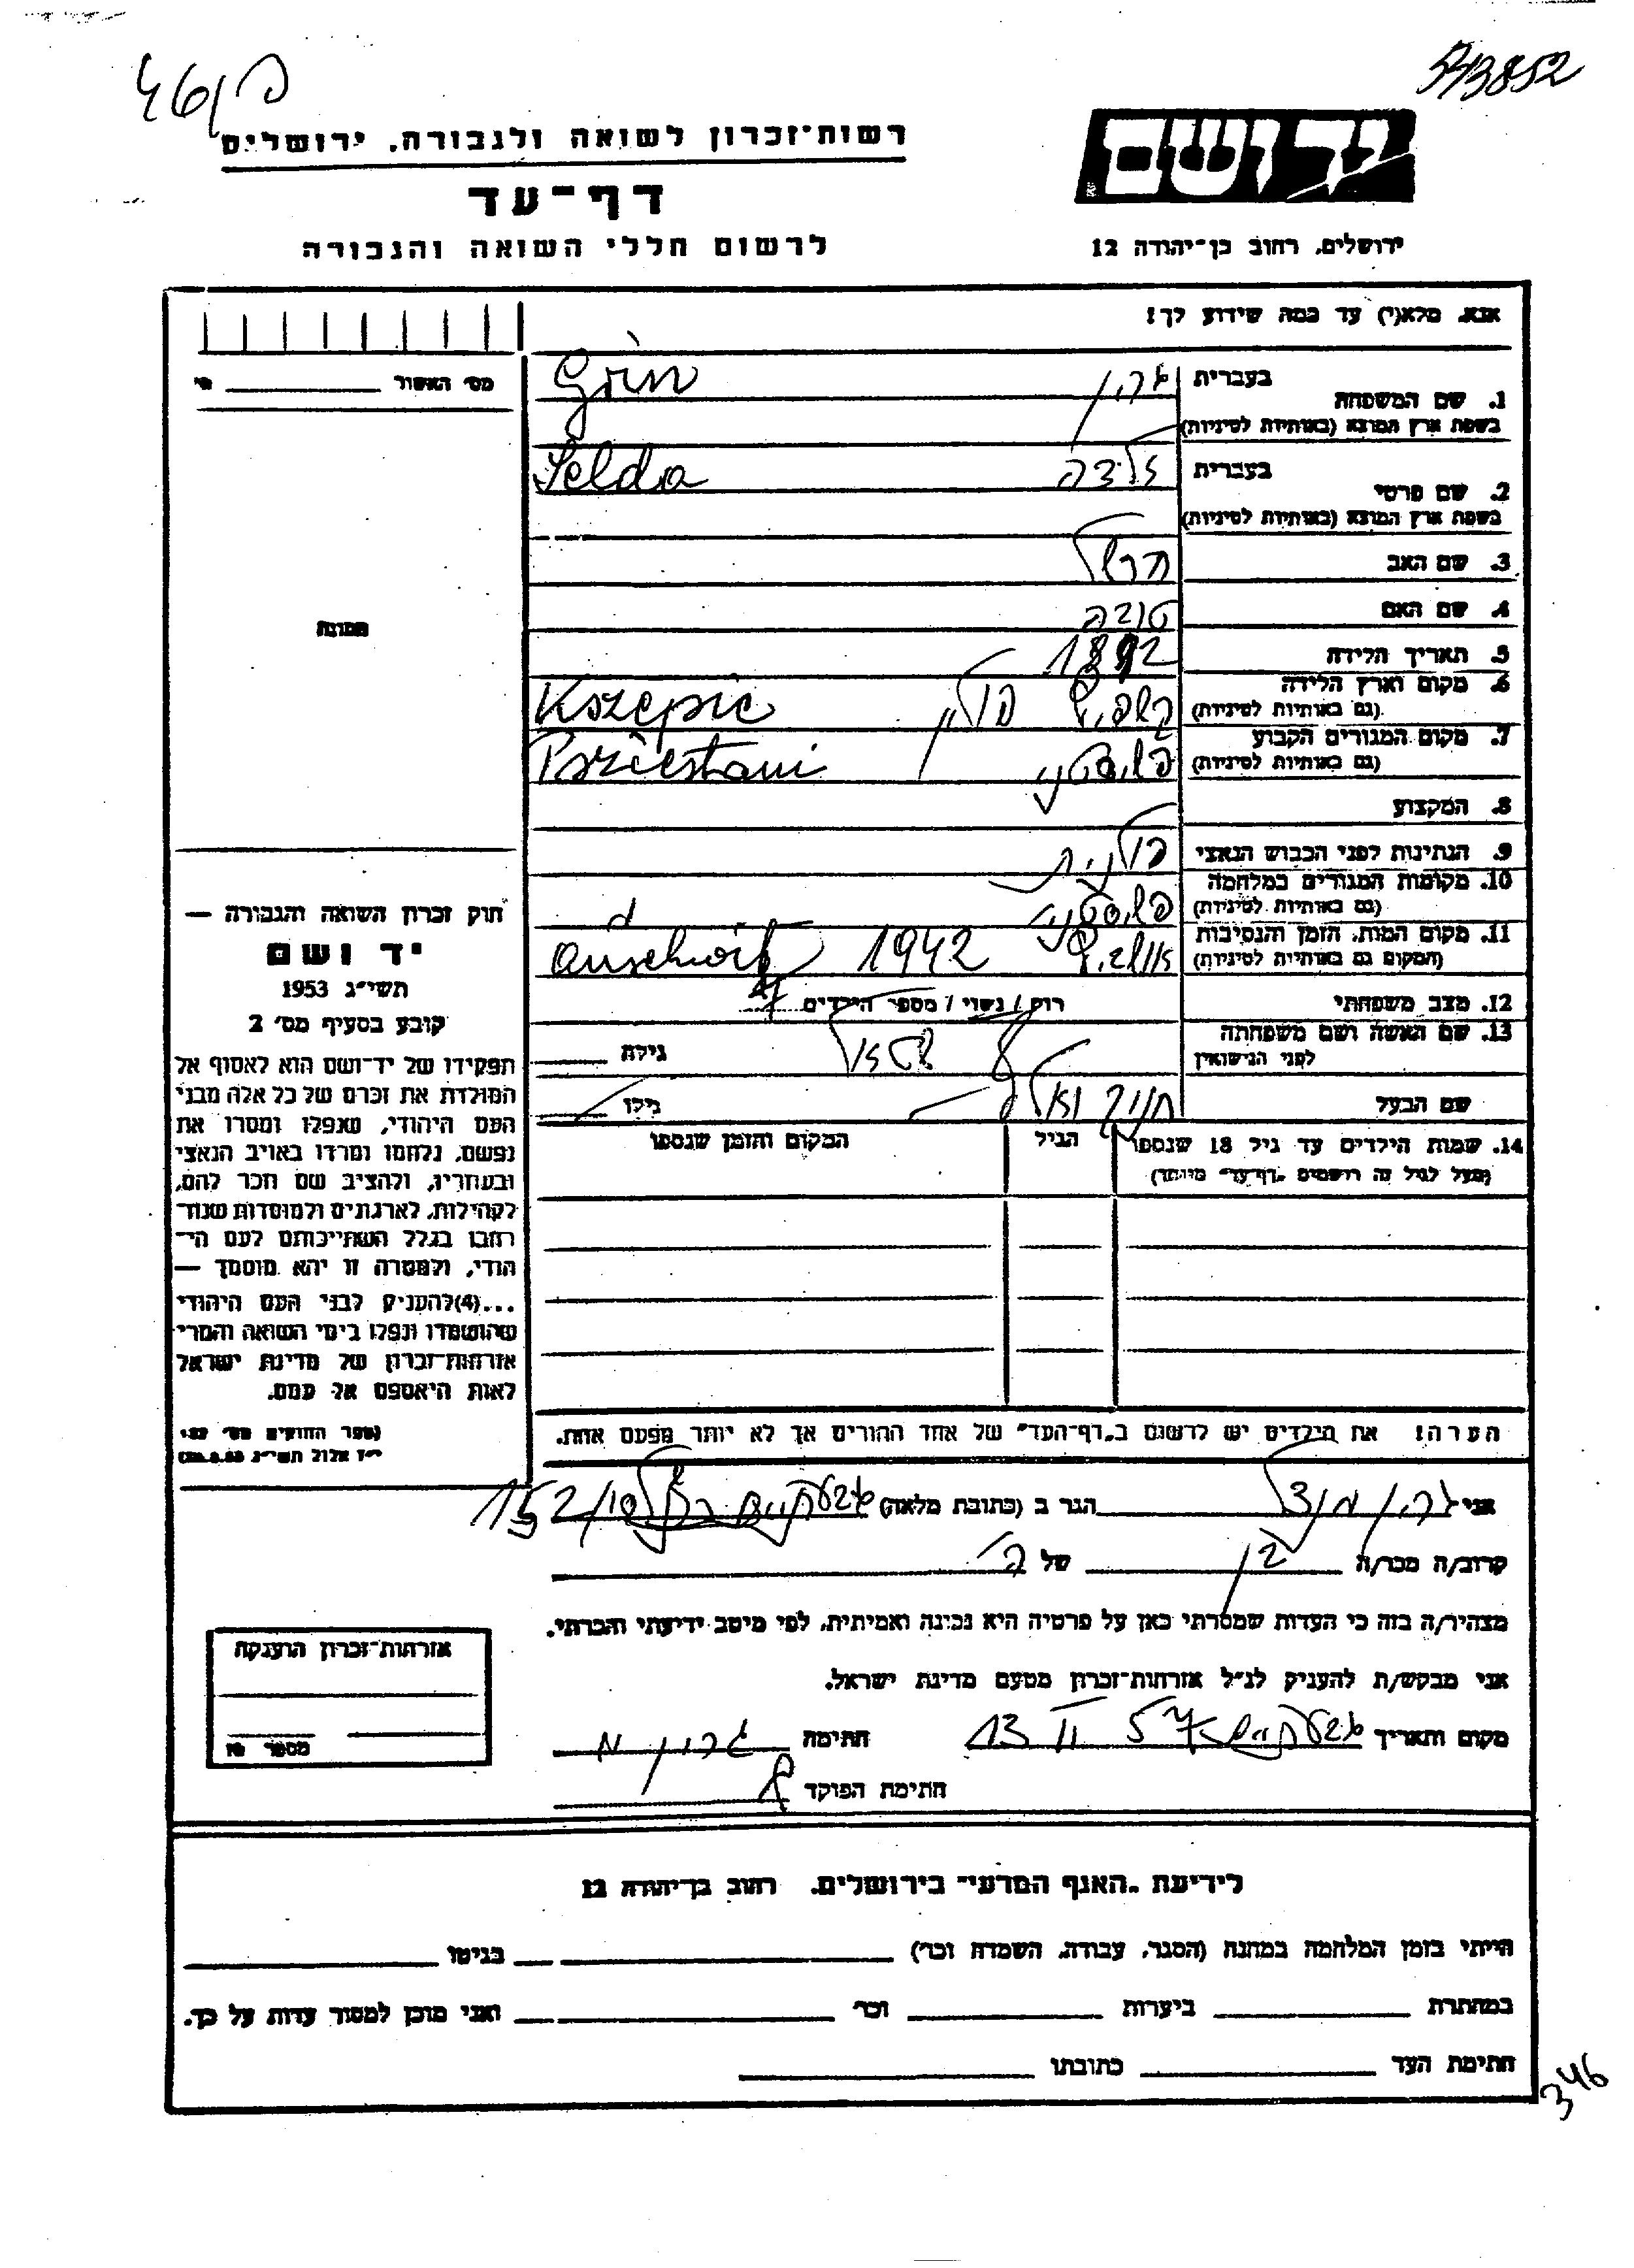 543852
רשות־זכרון לשואה ולגבורה, ירושלים
יד ושם
דף־עד
לרשום חללי השואה והגבורה
ירושלים, רחוב בן־יהודה 12
אנא, מלא(י) עד כמה שידוע לך!
מס׳ האשור
1. שם המשפחה
בעברית
Grin
בשפת ארץ המוצא (באותיות לטיניות)
2. שם פרטי
בעברית זלדה
Selda
בשפת ארץ המוצא (באותיות לטיניות)
3. שם האב הרשל
4. שם האם טובה
5. תאריך הלידה 1892
6. מקום וארץ הלידה
(גם באותיות לטיניות) פולין Kszepic
7. מקום המגורים הקבוע
(גם באותיות לטיניות) Psziestani
8. המקצוע
9. הנתינות לפני הכבוש הנאצי פולנית
10. מקומות המגורים במלחמה
(גם באותיות לטיניות)
11. מקום המות, הזמן והנסיבות
(המקום גם באותיות לטיניות) אושביץ 1942
12. מצב משפחתי רווק / נשוי / מספר הילדים
13. שם האשה ושם משפחתה
לפני הנישואין גילה
שם הבעל גילו
14. שמות הילדים עד גיל 18 שנספו הגיל המקום והזמן שנספו
(מעל לגיל זה רושמים „דף־עד״ מיוחד)
תמונה
חוק זכרון השואה והגבורה —
יד ושם
תשי״ג 1953
קובע בסעיף מס׳ 2
תפקידו של יד־ושם הוא לאסוף אל
המולדת את זכרם של כל אלה מבני
העם היהודי, שנפלו ומסרו את
נפשם, נלחמו ומרדו באויב הנאצי
ובעוזריו, ולהציב שם וזכר להם,
לקהילות, לארגונים ולמוסדות שנח־
רבו בגלל השתייכותם לעם הי־
הודי, ולמטרה זו יהא מוסמך —
...(4)להעניק לבני העם היהודי
שהושמדו ונפלו בימי השואה והמרי
אזרחות־זכרון של מדינת ישראל
לאות היאספם אל עמם.
(ספר החוקים מס׳ 132
הערה! את הילדים יש לרשום ב„דף־העד״ של אחד ההורים אך לא יותר מפעם אחת.
אני הגר ב (כתובת מלאה)
קרוב/ה מכר/ה בן של
מצהיר/ה בזה כי העדות שמסרתי כאן על פרטיה היא נכונה ואמיתית, לפי מיטב ידיעתי והכרתי.
אני מבקש/ת להעניק לנ״ל אזרחות־זכרון מטעם מדינת ישראל.
מקום ותאריך 13 II 57 חתימה
חתימת הפוקד
אזרחות־זכרון הוענקה
מספר
לידיעת „האגף המדעי״ בירושלים, רחוב בן־יהודה 12
הייתי בזמן המלחמה במחנה (הסגר, עבודה, השמדה וכו׳) בגיטו
במחתרת ביערות וכו׳ ואני מוכן למסור עדות על כך.
חתימת העד כתובתו
346